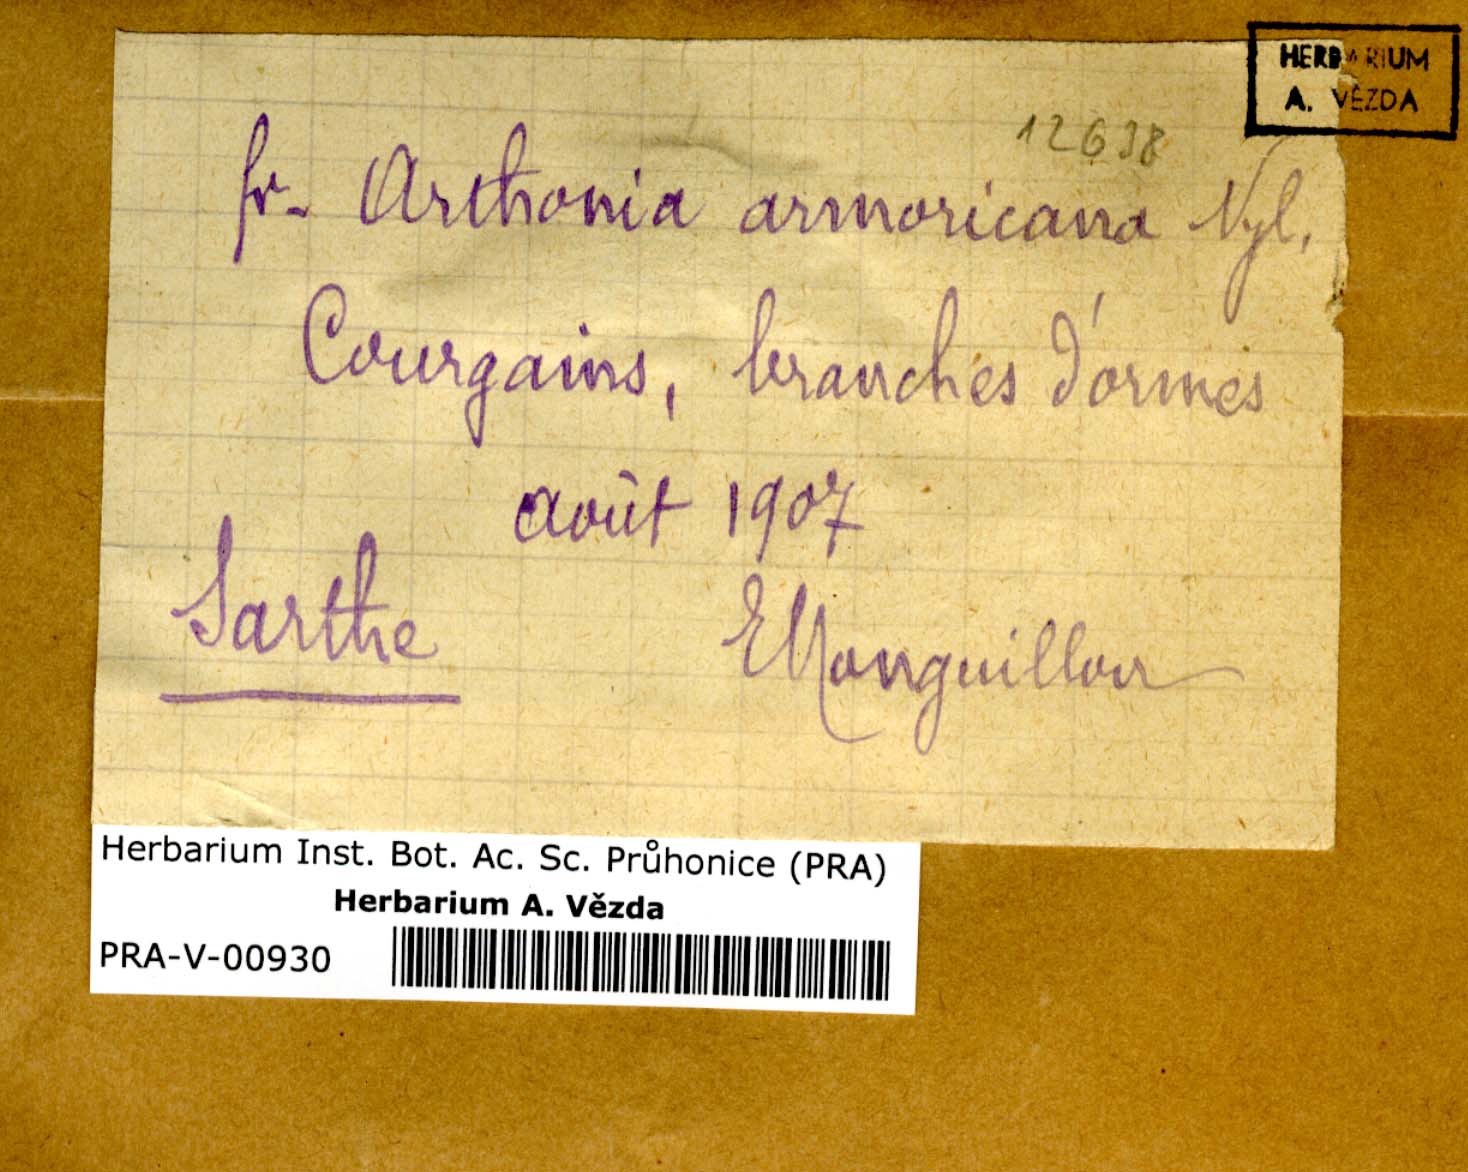 HERBARIUM
A. VĚZDA
12638
fr. Arthonia armoricana Nyl.
Courgains, branches d'ormes
août 1907
Sarthe
E Monguillon
Herbarium Inst. Bot. Ac. Sc. Průhonice (PRA)
Herbarium A. Vězda
PRA-V-00930